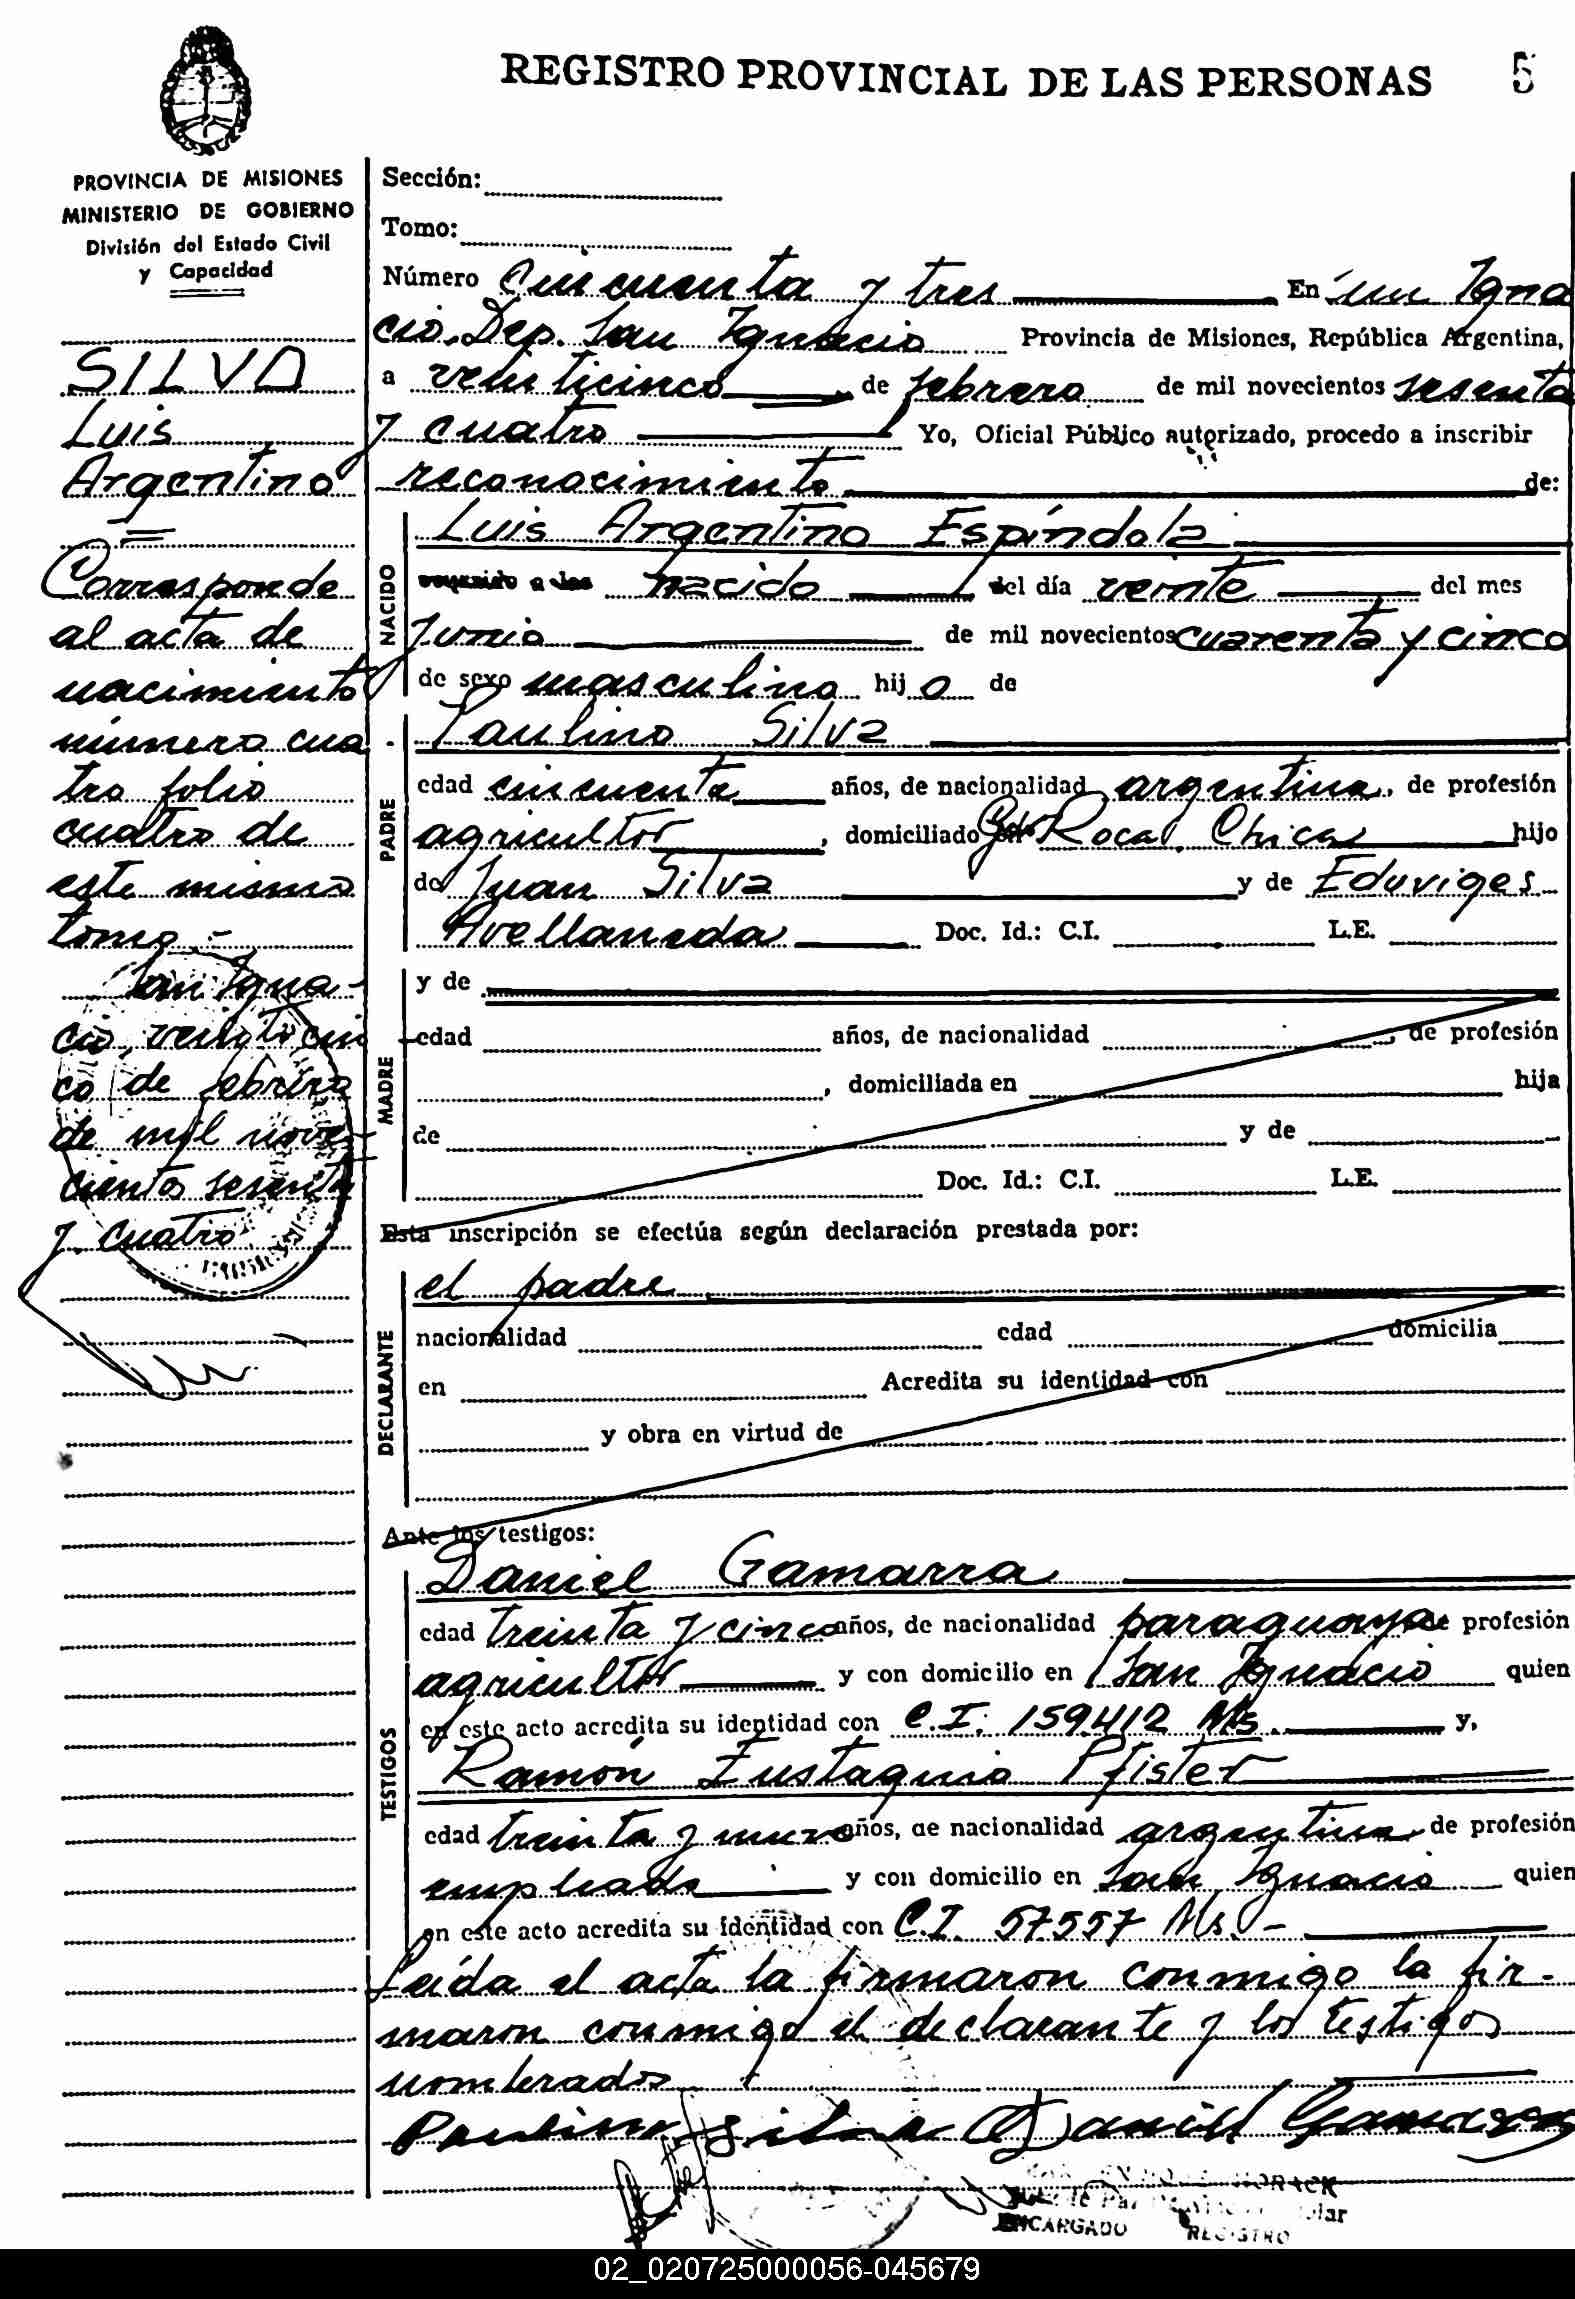 REGISTRO PROVINCIAL DE LAS PERSONAS 5
PROVINCIA DE MISIONES
MINISTERIO DE GOBIERNO
División del Estado Civil
y Capacidad
SILVA
Luis
Argentino
Corresponde
al acta de
nacimiento
número cua
tro folio
cuatro de
este mismo
tomo.-
San Igna-
cio, veinticin
co de febrero
de mil nove-
cientos sesenta
y cuatro
Sección:
Tomo:
Número Cincuenta y tres En San Igna
cio. Dep. San Ignacio Provincia de Misiones, República Argentina,
a veinticinco, de febrero de mil novecientos sesenta
y cuatro Yo, Oficial Público autorizado, procedo a inscribir
reconocimiento de:
NACIDO
Luis Argentino Espíndola
nacido del día veinte del mes
Junio de mil novecientos cuarenta y cinco
de sexo masculino hijo de
PADRE
Paulino Silva
edad cincuenta años, de nacionalidad argentina, de profesión
agricultor, domiciliado Roca Chica hijo
de Juan Silva y de Eduviges
Avellaneda Doc. Id.: C.I. L.E.
MADRE
y de
edad años, de nacionalidad , de profesión
, domiciliada en hija
de y de
Doc. Id.: C.I. L.E.
Esta inscripción se efectúa según declaración prestada por:
DECLARANTE
el padre
nacionalidad edad domicilia
en Acredita su identidad con
y obra en virtud de
Ante los testigos:
TESTIGOS
Daniel Gamarra
edad treinta y cinco años, de nacionalidad paraguaya de profesión
agricultor y con domicilio en San Ignacio quien
en este acto acredita su identidad con C.I. 159412 Ms. y,
Ramón Eustaquio Pfister
edad treinta y nueve años, de nacionalidad argentina, de profesión
empleado y con domicilio en San Ignacio quien
en este acto acredita su identidad con C.I. 57557 Ms.-
Leída el acta la firmaron conmigo la fir-
maron conmigo el declarante y los testigos
nombrados
Paulino Silva Daniel Gamarra
ENCARGADO REGISTRO
02_020725000056-045679